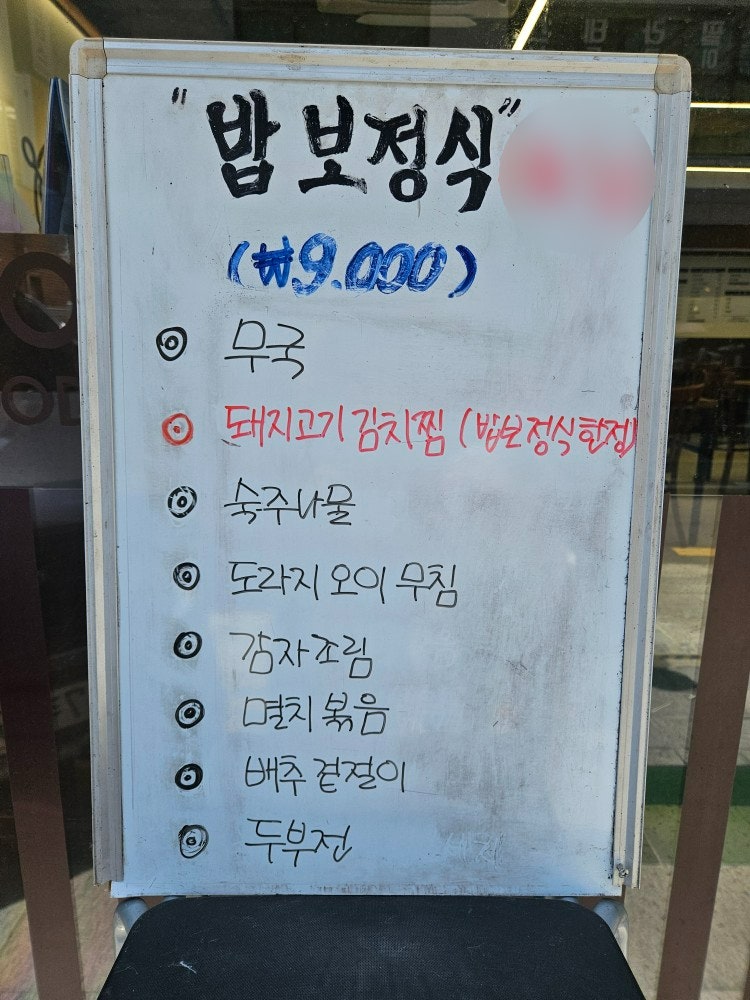 "밥보정식"
(₩9.000)
◎ 무국
◎ 돼지고기 김치찜 (밥보정식한정)
◎ 숙주나물
◎ 도라지 오이 무침
◎ 감자조림
◎ 멸치볶음
◎ 배추 겉절이
◎ 두부전